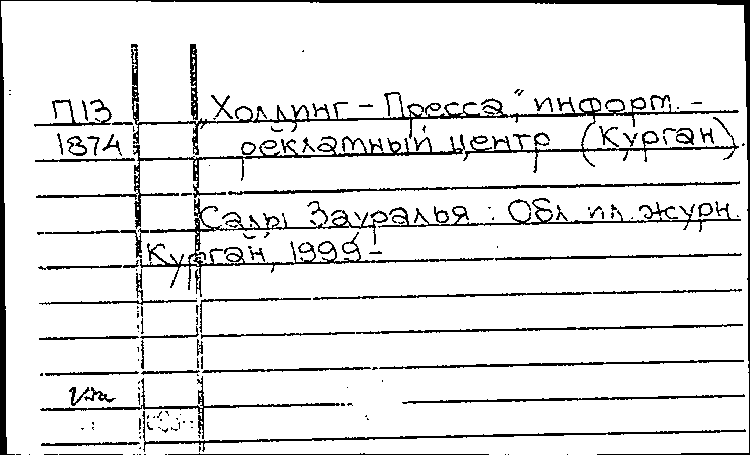 П13 „Холдинг - Пресса“, информ. -
1874 рекламный центр (Курган).
Сады Зауралья : Обл. пл. журн.
Курган, 1999 -